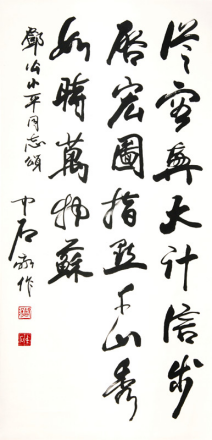 從容興大計信步
啓宏圖指點千山秀
如晴萬物蘇
鄧公小平同志頌
中石敬作